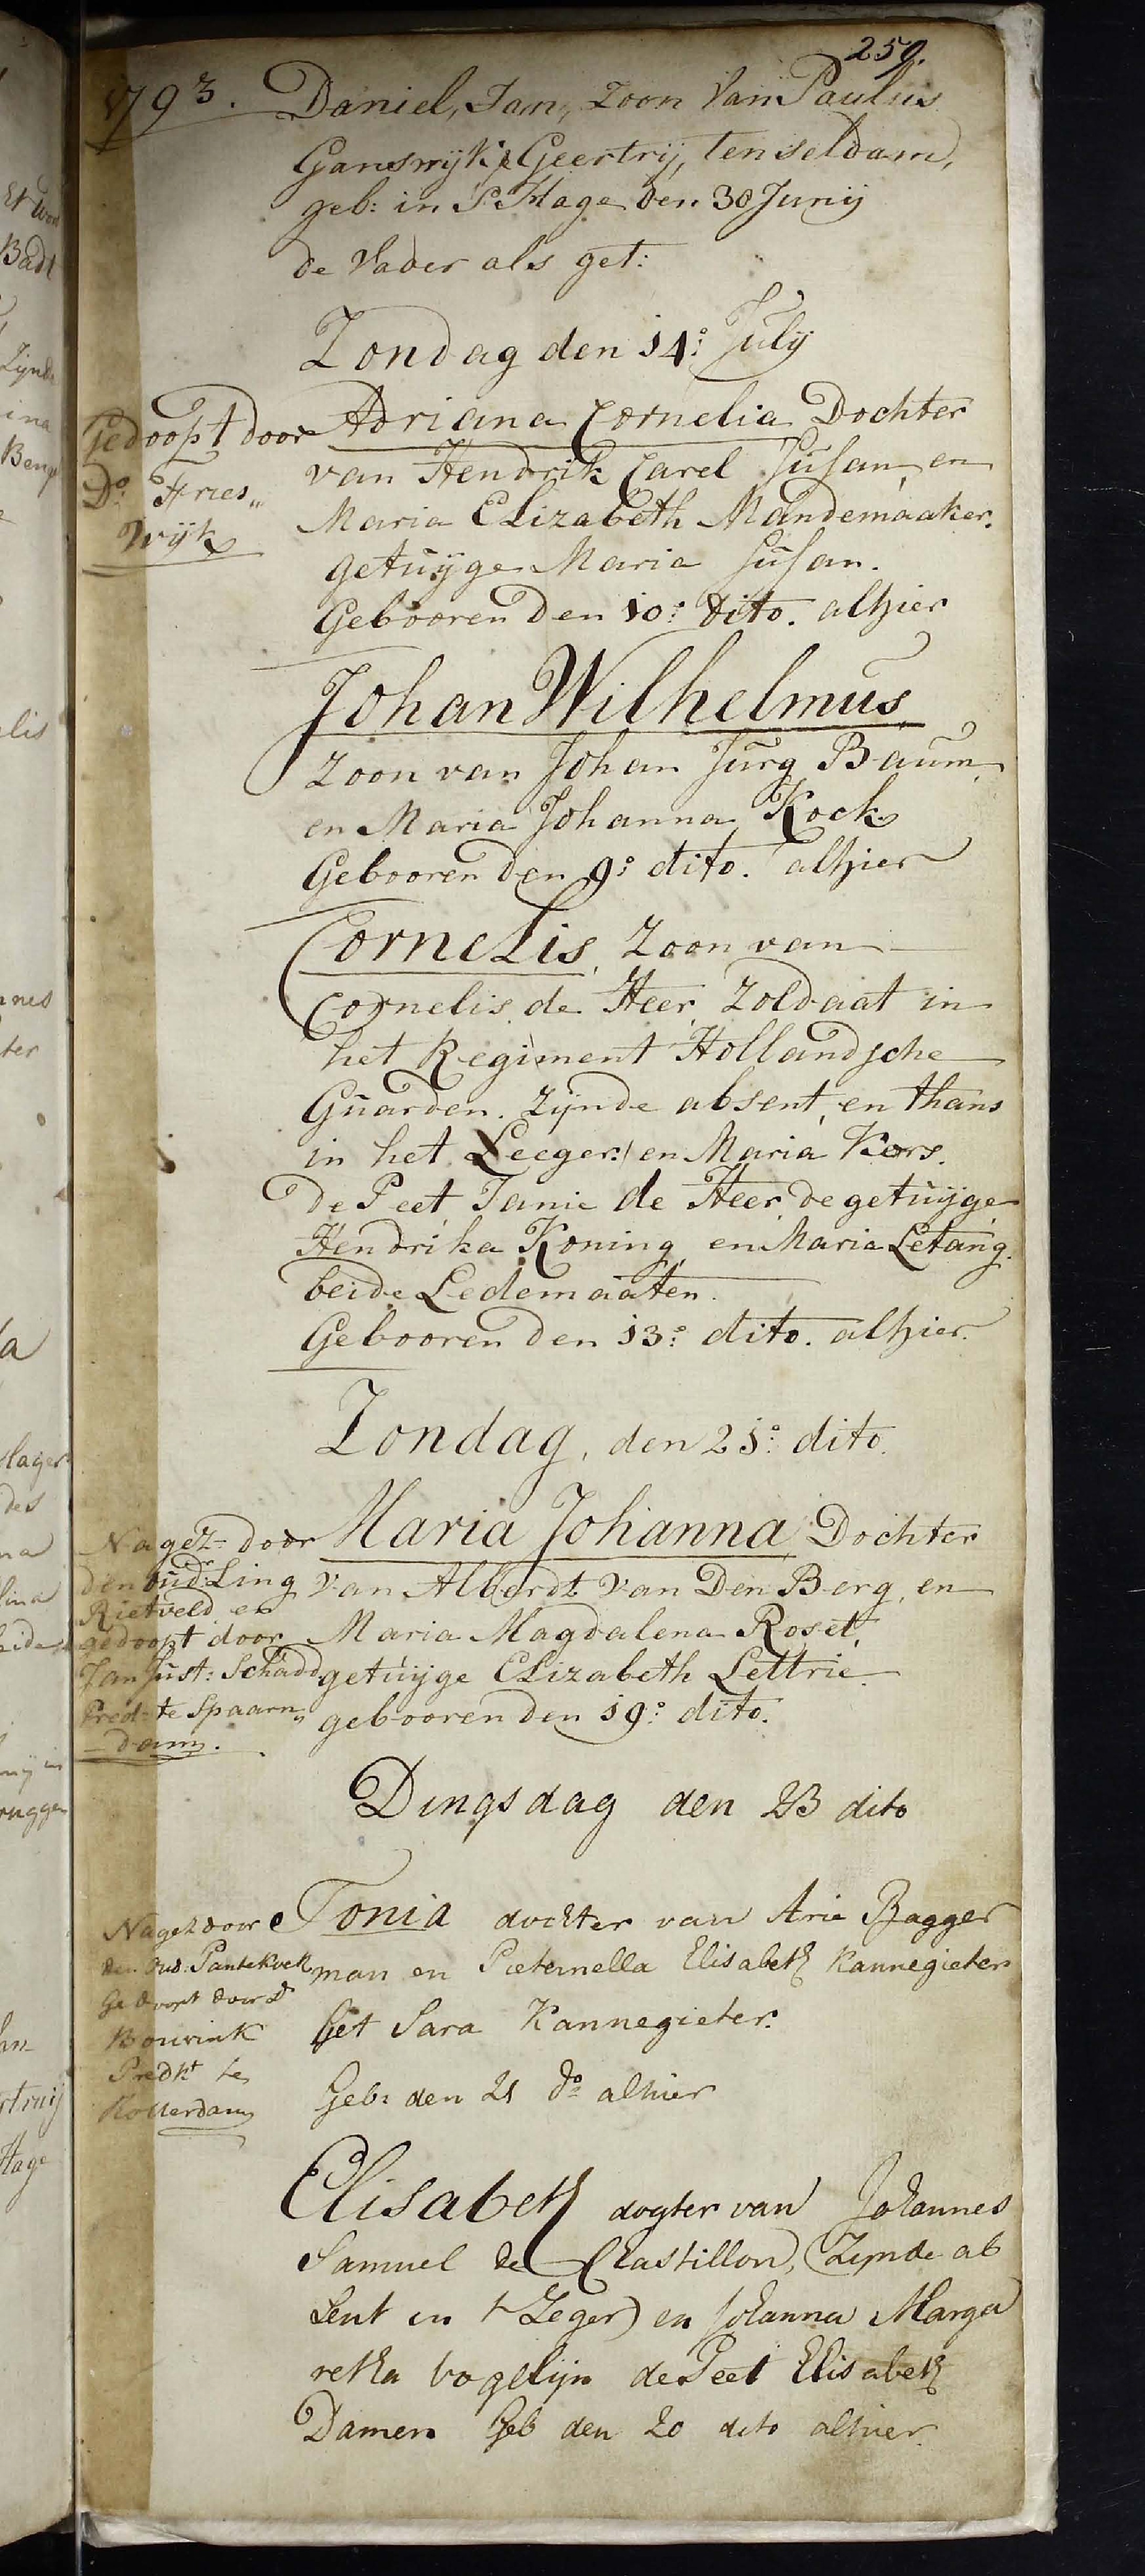 250.
1793. Daniel, Jan, Zoon Van Paulus
Ganswijk, & Geertrij, Tenseldam,
geb: in S Hage den 30 Junij
de Vader als get:
Zondag den 14: July
Gedoopt door
Do Fries„
Wijk
Adriana Cornelia Dochter
van Hendrik Carel Susan, en
Maria Elizabeth Mandemaaker.
getuijge Maria Susan.
Gebooren den 10: dito. alhier
Johan Wilhelmus
Zoon van Johan Jurg Baum,
en Maria Johanna Kock
Gebooren den 9: dito. alhier
Cornelis, Zoon van
Cornelis de Heer, Zoldaat in
het Regiment Hollandsche
Guarden. Zijnde absent, en thans
in het Leeger, en Maria Kors.
De Peet Janie de Heer, de getuijge
Hendrika Koning, en Maria Letang.
beide Ledemaaten.
Gebooren den 13: dito. alhier.
Zondag, den 21: dito.
Nagez= door
den oudr Ling
Rietveld en
gedoopt door
Jan Just: Schadd
Pred= te Spaarn„
dam.
Maria Johanna Dochter
van Alberdt Van Den Berg, en
Maria Magdalena Roset,
getuijge Elizabeth Lettrie
gebooren den 19: dito.
Dingsdag den 23 dito
Nagez door
den Oud: Pantekoek
Gedoopt door D
Bouvink
Predkt te
Rotterdam
Tonia dochter van Arie Bagger
man en Pieternella Elisabeth Kannegieter
Get Sara Kannegieter.
Geb: den 21 do alhier
Elisabeth dogter van Johannes
Samuel de Chastillon, (Zynde ab
sent in t Leger) en Johanna Marga
retha Vogelijn de Peet Elisabeth
Damen Geb den 20 dito alhier.